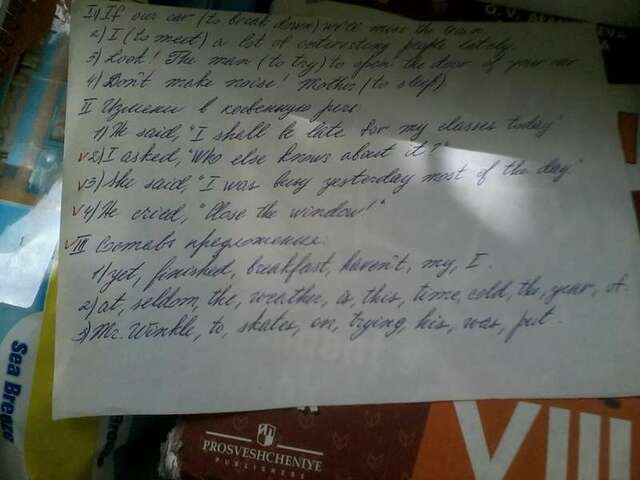 I 1) If our car (to break down) we'll miss the train.
2) I (to meet) a lot of interesting people lately.
3) Look! The man (to try) to open the door of your car
4) Don't make noise! Mother (to sleep)
II Измени в косвенную речь.
1) He said, "I shall be late for my classes today"
v 2) I asked, "Who else knows about it?"
v 3) She said, "I was busy yesterday most of the day."
v 4) He cried, "Close the window!"
v III Составь предложения:
1) yet, finished, breakfast, haven't, my, I.
2) at, seldom, the, weather, is, this, time, cold, the, year, of.
3) Mr. Winkle, to, skates, on, trying, his, was, put.
Sea Breeze
PROSVESHCHENIYE
PUBLISHERS
VIII